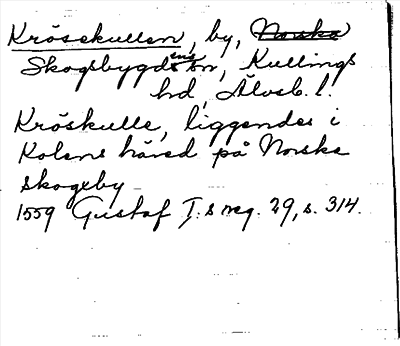 Krösekullen, by, Norska
Skogsbygdens sn, Kullings
hd, Älvsb. l.
Kröskulle, liggendes i
Kolens häred på Norske
skogeby
1559 Gustaf I:s reg. 29, s. 314.